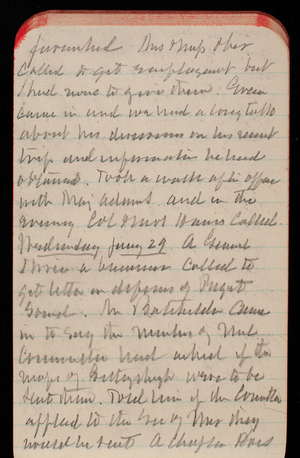 furnished. Mrs & Miss
called to get employment but
I had none to give them. Green
came in and we had a long talk
about his discussions on his recent
trip and information he had
obtained. Took a walk after office
with Maj Adams and in the
evening Col & Mrs Haines called.
Wednesday Jany 29 A General
& a called to
get letter on defenses of Puget
Sound. Mr Batchelder came
in to say the number of Mil
Committee had asked if the
maps of Gettysburgh were to be
sent them. Told him if the Committee
applied to the Sec of War they
would be sent A Chaplin